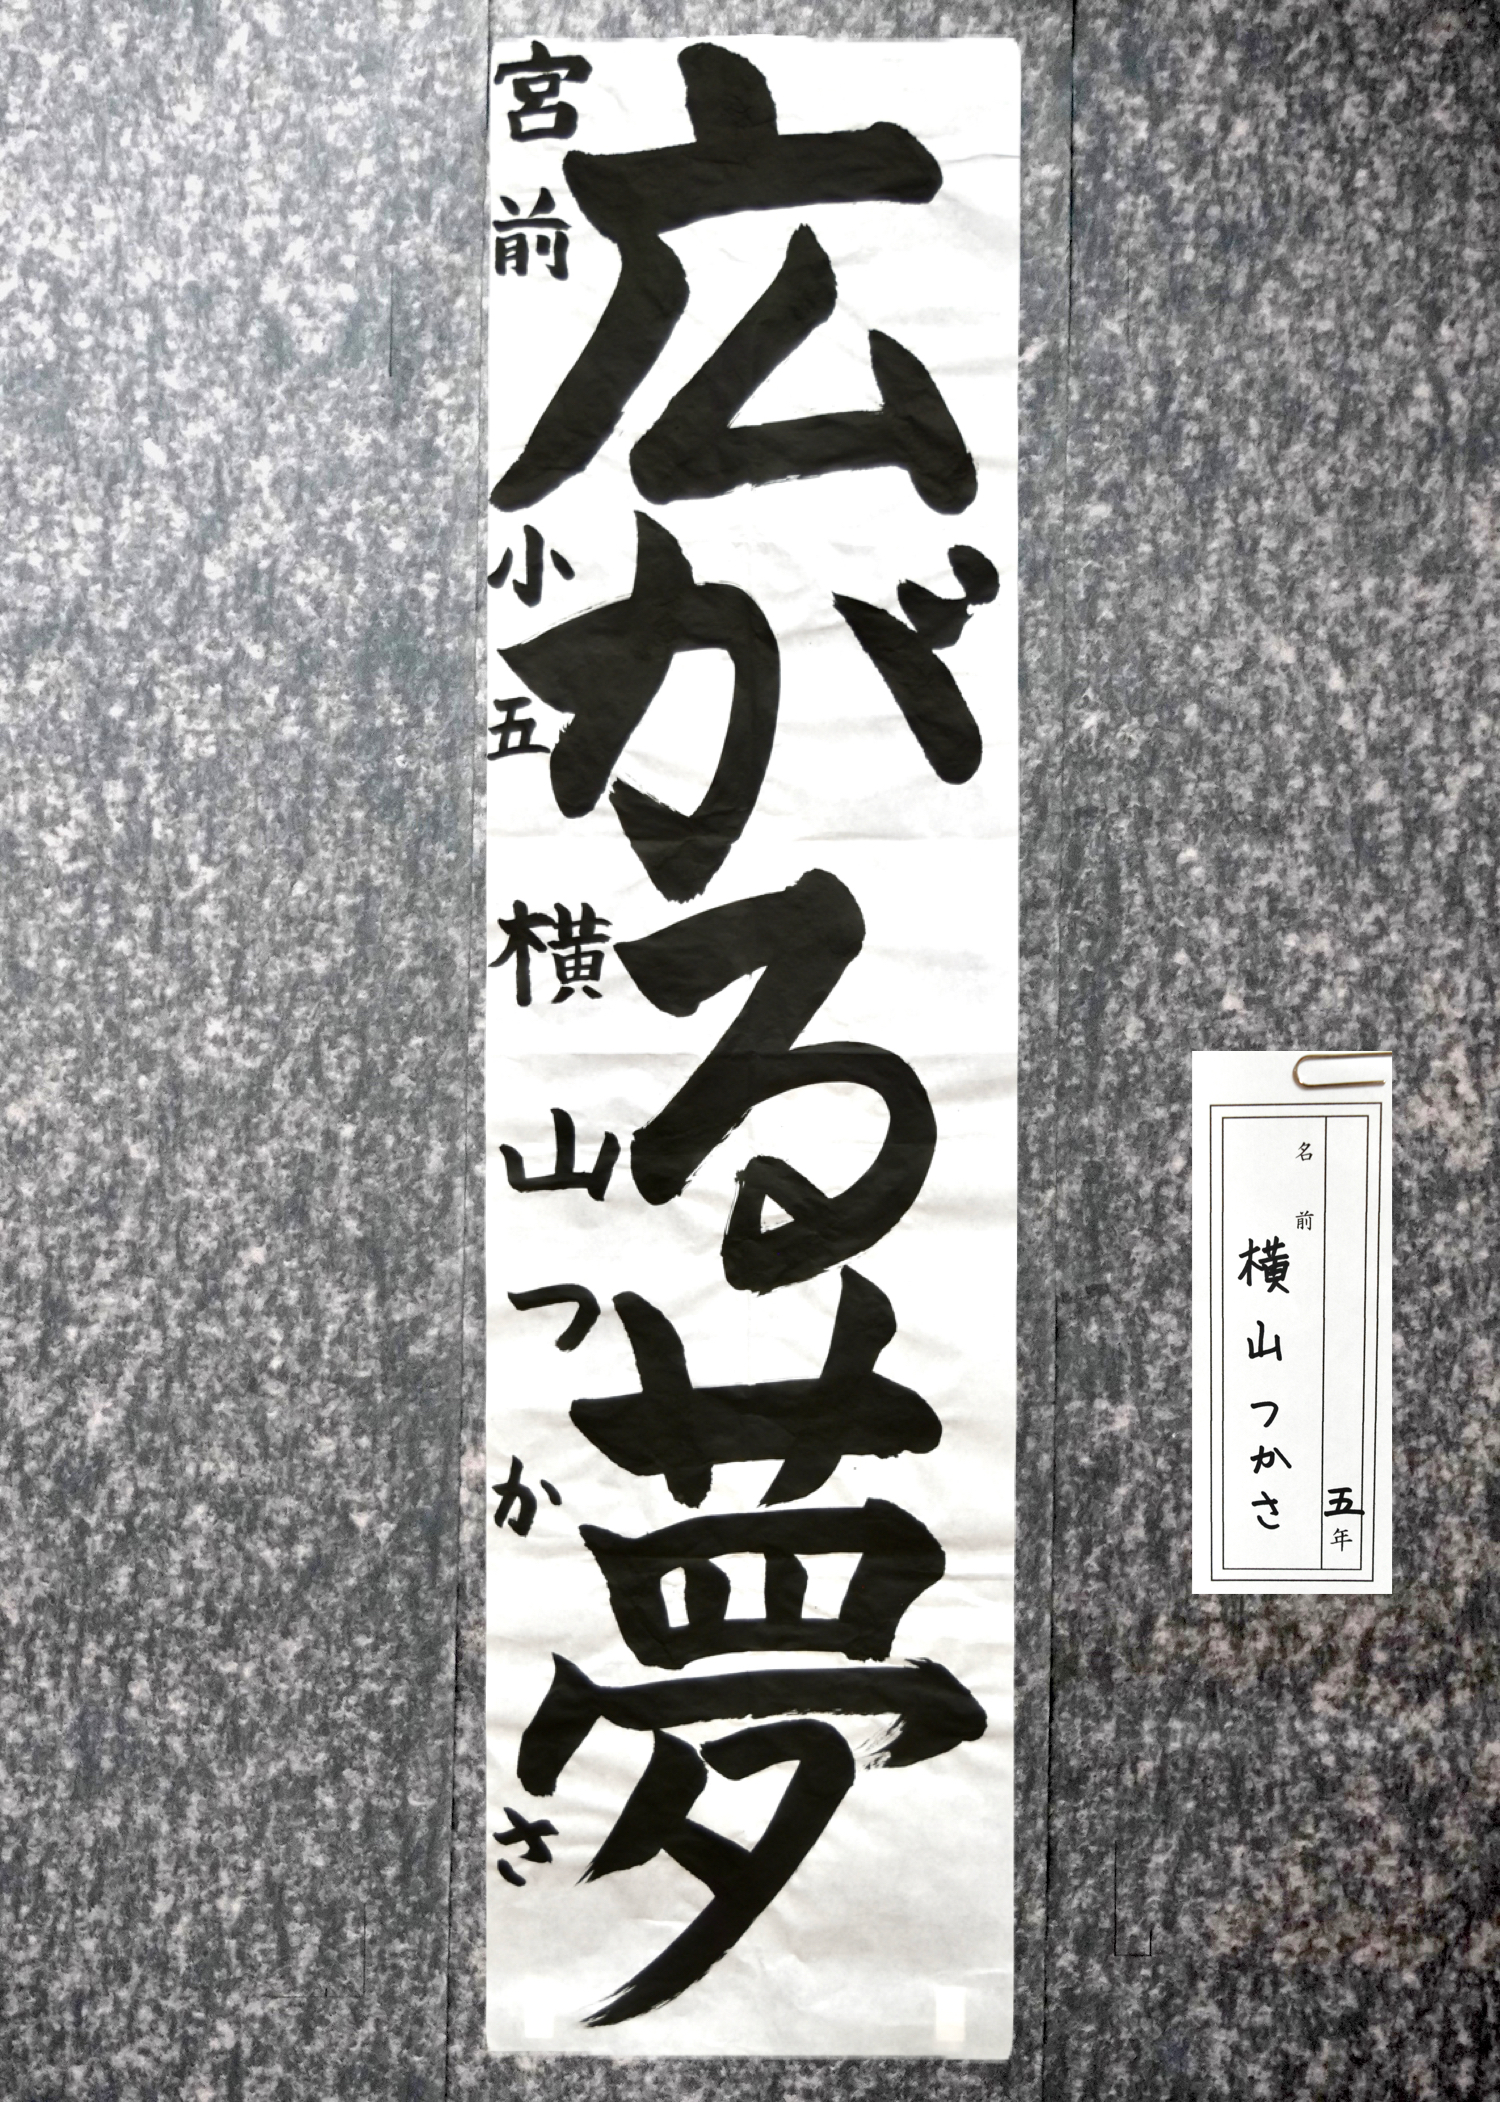 広がる夢
宮前小五 横山つかさ
五年
名前
横山つかさ